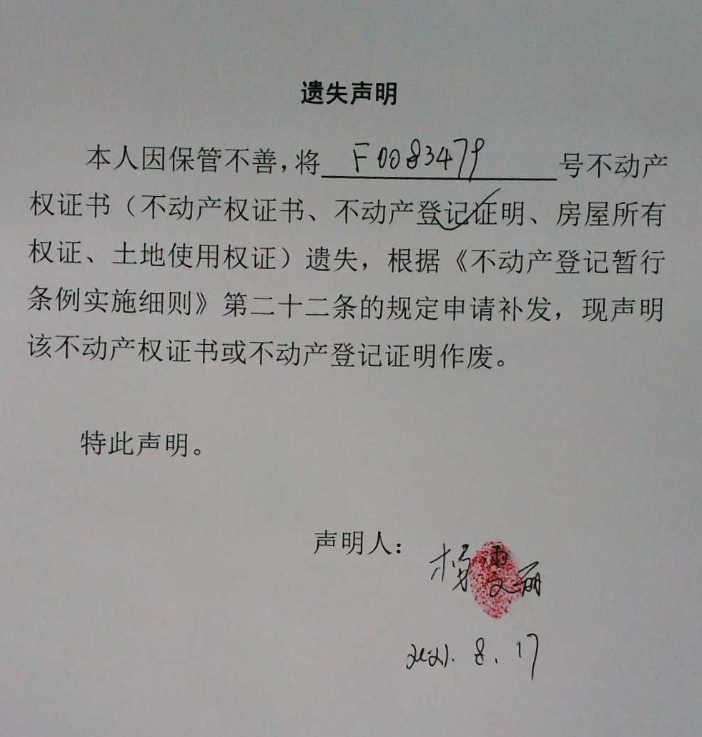 遗失声明
本人因保管不善，将 F0083479 号不动产
权证书（不动产权证书、不动产登记证明、房屋所有
权证、土地使用权证）遗失，根据《不动产登记暂行
条例实施细则》第二十二条的规定申请补发，现声明
该不动产权证书或不动产登记证明作废。
特此声明。
声明人：杨雯丽
2021.8.17